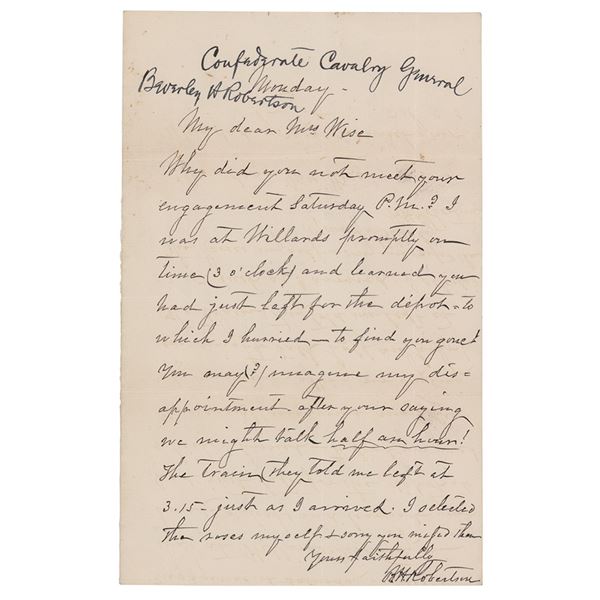 Confederate Cavalry General
Beverley H Robertson
Monday -
My dear Mrs Wise
Why did you not meet your
engagement Saturday P.M.? I
was at Willards promptly on
time (3 o'clock) and learned you
had just left for the depot - to
which I hurried - to find you gone!
You may (?) imagine my dis=
appointment after your saying
we might talk half an hour!
The train (they told me left at
3.15 - just as I arrived. I selected
the roses myself & sorry you missed them
Yours faithfully
BHRobertson